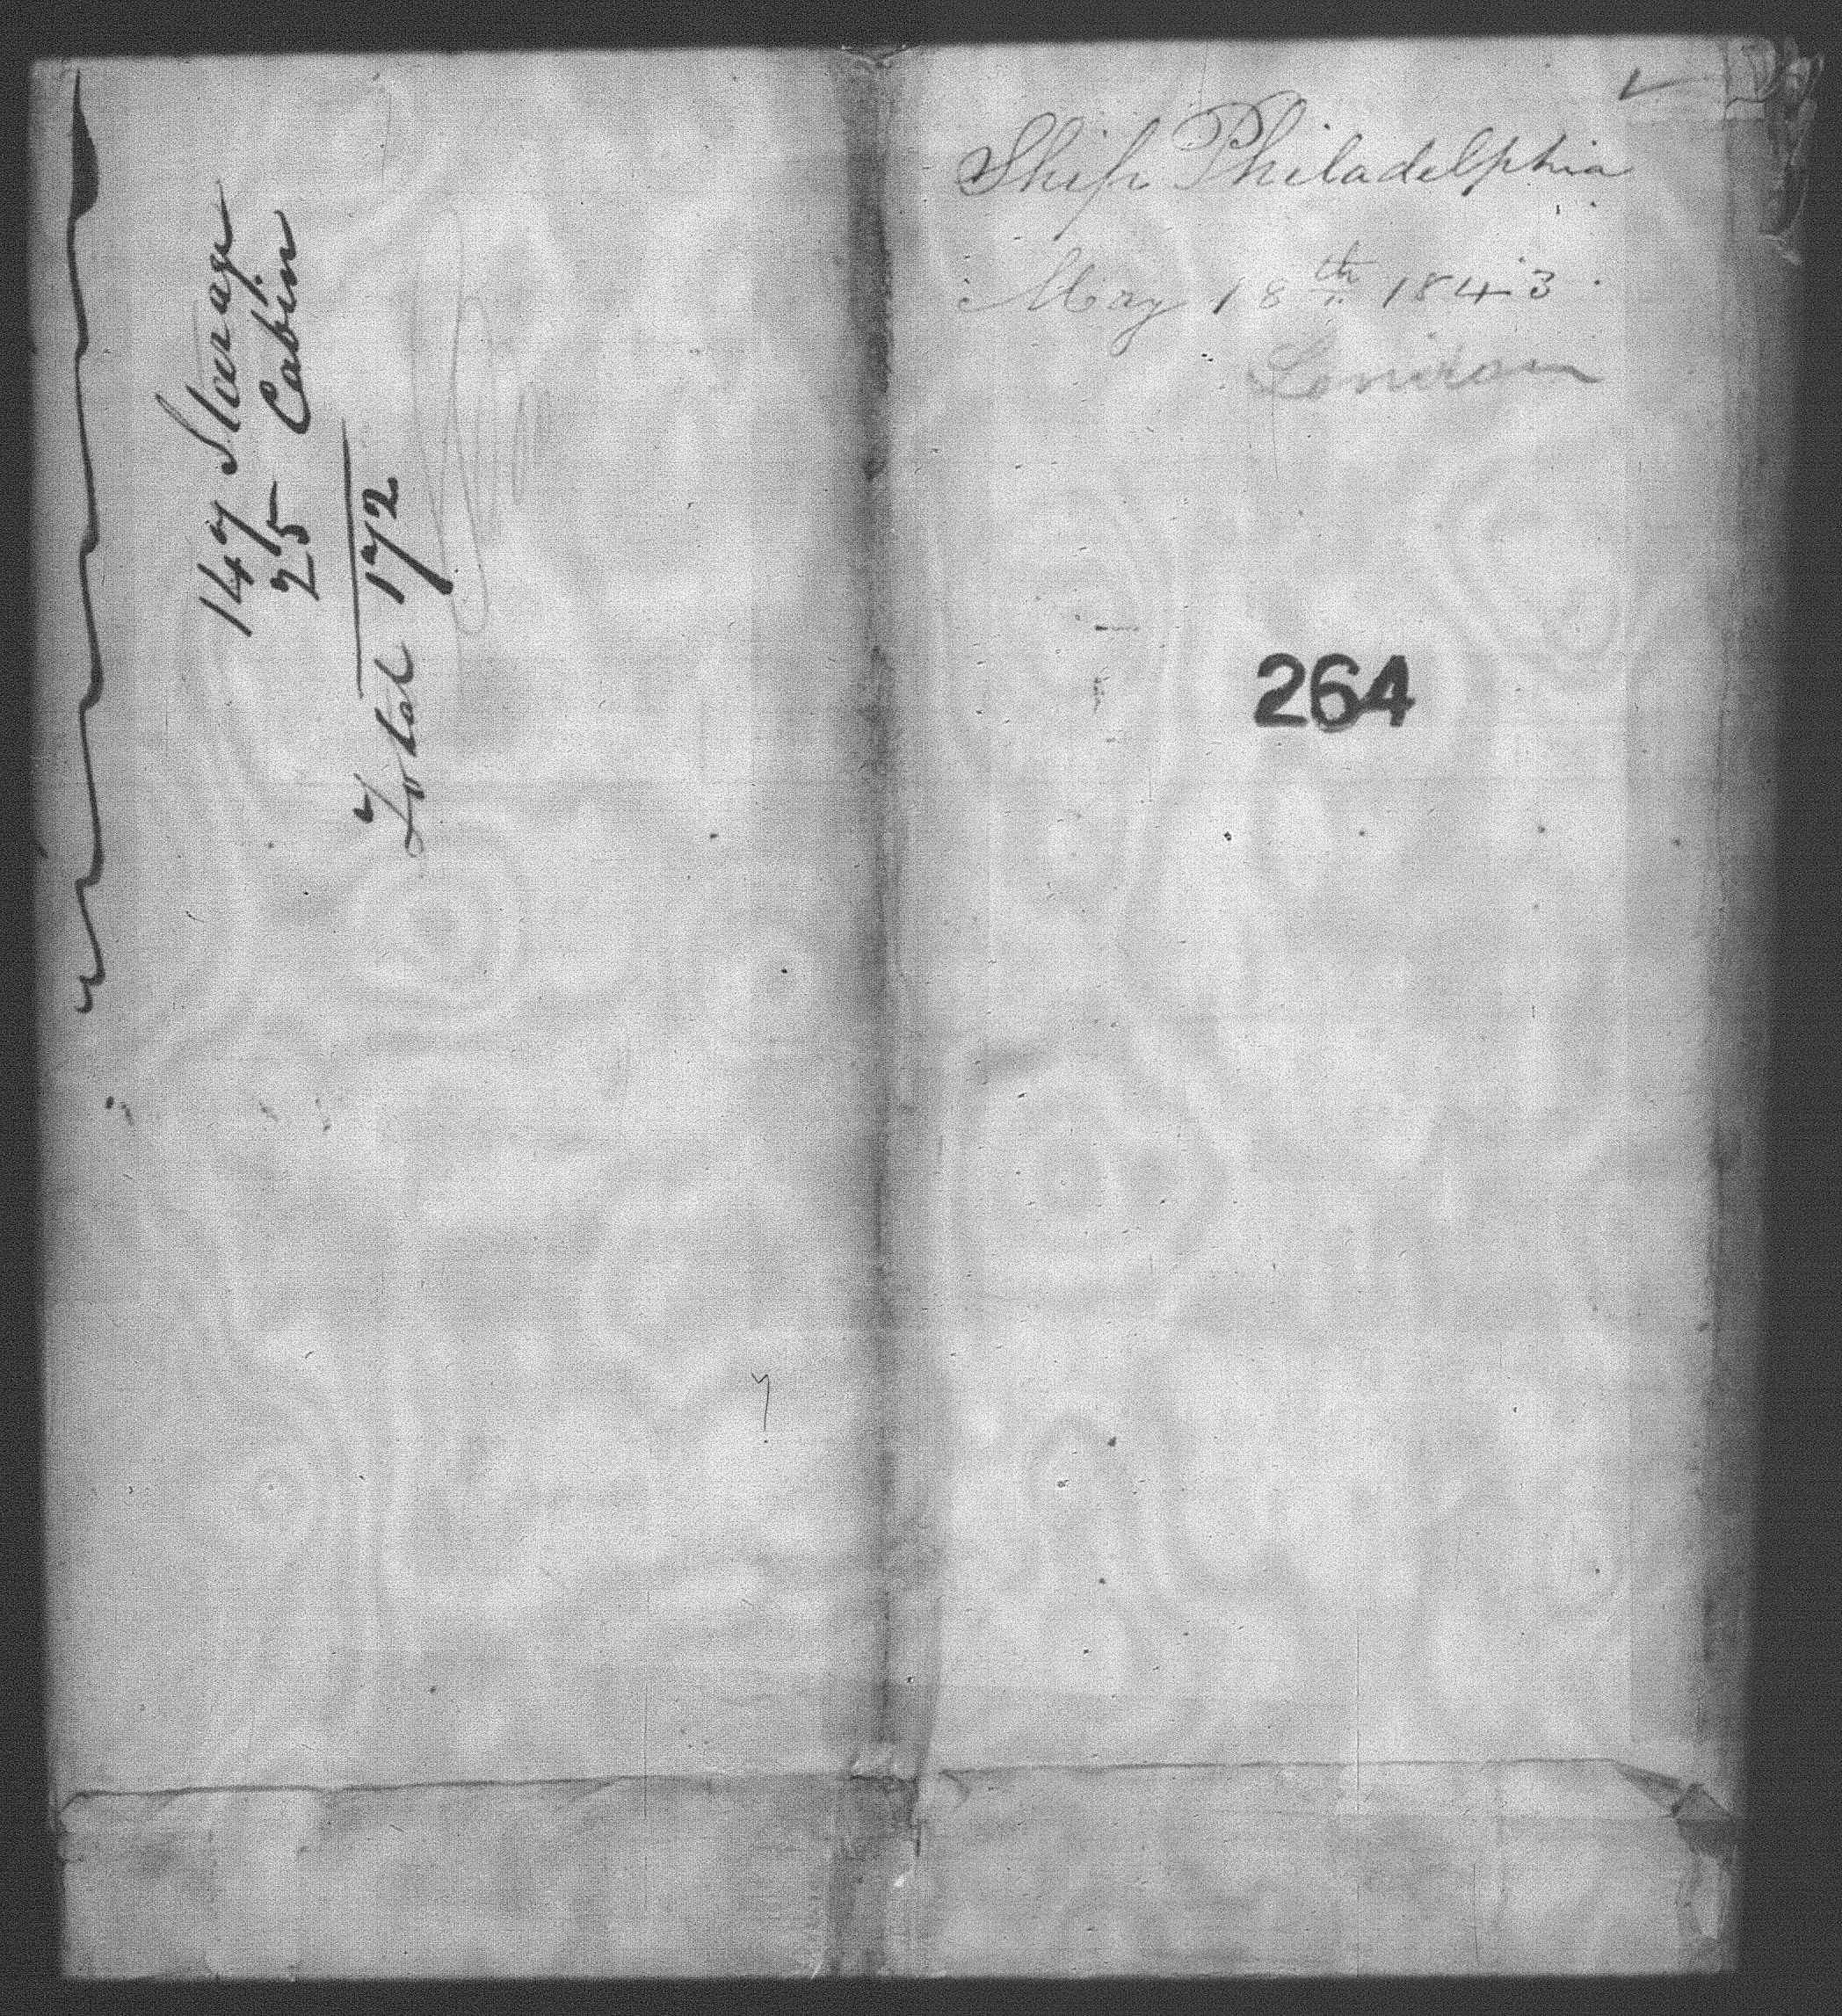 147 Steerage
25 Cabin
Total 172
Ship Philadelphia
May 18th 1843
London
264